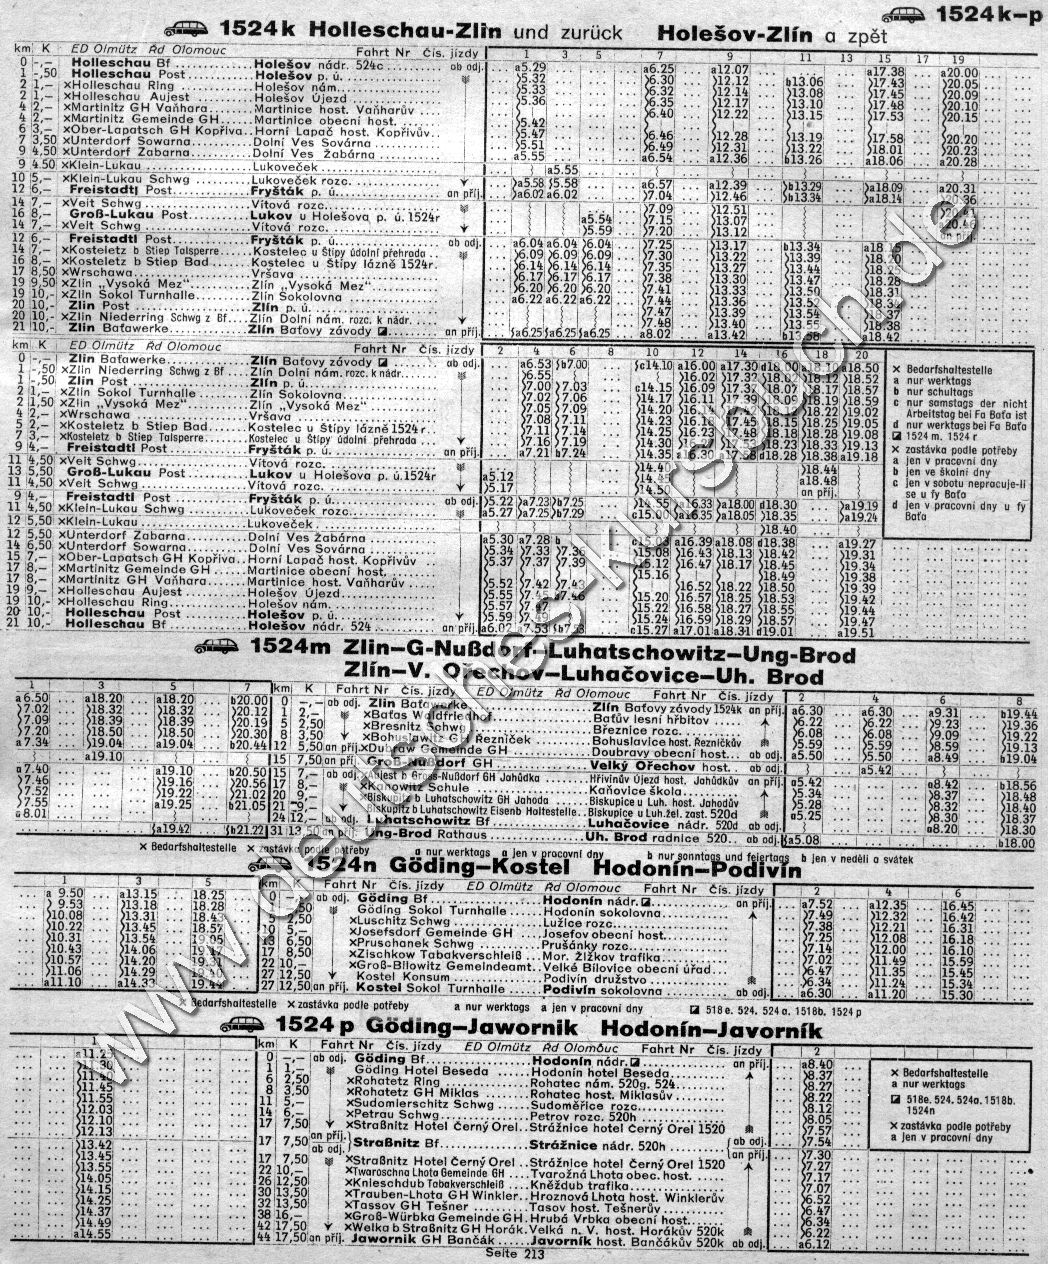 1524k–p
1524k Holleschau-Zlin und zurück Holešov-Zlín a zpět
km K ED Olmütz Řd Olomouc Fahrt Nr Čís. jízdy 1 3 5 7 9 11 13 15 17 19
0 -,- Holleschau Bf Holešov nádr. 524c ab odj. a5.29 a6.25 a12.07 a17.38 a20.00
1 -,50 Holleschau Post Holešov p. ú. 5.32 6.30 12.12 b13.06 17.43 20.05
2 1,- ×Holleschau Ring Holešov nám. 5.33 6.32 12.14 13.08 17.45 20.09
2 1,- ×Holleschau Aujest Holešov Újezd 5.36 6.35 12.17 13.10 17.48 20.10
4 2,- ×Martinitz GH Vaňhara Martinice host. Vaňharův 6.40 12.22 13.15 17.53 20.15
4 2,- ×Martinitz Gemeinde GH Martinice obecní host. 5.42
6 3,- ×Ober-Lapatsch GH Kopřiva Horní Lapač host. Kopřivův 5.47 6.46 12.28 13.19 17.58 20.20
7 3,50 ×Unterdorf Sowarna Dolní Ves Sovárna 5.51 6.49 12.31 13.22 18.01 20.23
9 4,50 ×Unterdorf Zabarna Dolní Ves Žabárna a5.55 a6.54 a12.36 b13.26 a18.06 a20.28
9 4.50 ×Klein-Lukau Lukoveček a5.55
10 5,- ×Klein-Lukau Schwg Lukoveček rozc. a5.58 5.58
12 6,- Freistadtl Post Fryšták p. ú. an příj. a6.02 a6.02 7.04 12.46 b13.34 a18.14
14 7,- ×Veit Schwg Vítová rozc. 7.09 12.51
16 8,- Groß-Lukau Post Lukov u Holešova p. ú. 1524r a5.54 7.15 13.07
14 7,- ×Veit Schwg Vítová rozc. 5.59 7.20 13.12
12 6,- Freistadtl Post Fryšták p. ú. ab odj. a6.04 a6.04 6.04 7.25 13.17 b13.34
14 7,- ×Kosteletz b Stiep Talsperre Kostelec u Štípy údolní přehrada 6.09 6.09 6.09 7.30 13.22 13.39
16 8,- ×Kosteletz b Stiep Bad Kostelec u Štípy lázně 1524r. 6.14 6.14 6.14 7.35 13.27 13.44
17 8,50 ×Wrschawa Vršava 6.17 6.17 6.17 7.38 13.30 13.47
19 9,50 ×Zlin „Vysoká Mez“ Zlín „Vysoká Mez“ 6.20 6.20 6.20 7.41 13.33 13.50
19 10,- ×Zlin Sokol Turnhalle Zlín Sokolovna a6.22 a6.22 a6.22 7.44 13.36 13.52
20 10,- Zlin Post Zlín p. ú. 7.47 13.39 13.54
20 10,- ×Zlin Niederring Schwg z Bf Zlín Dolní nám. rozc. k nádr. 7.48 13.40
21 10,- Zlin Baťawerke Zlín Baťovy závody an příj. a6.25 a6.25 a6.25 a8.02 a13.42
km K ED Olmütz Řd Olomouc Fahrt Nr Čís. jízdy 2 4 6 8 10 12 14 16 18 20
0 -,- Zlin Baťawerke Zlín Baťovy závody ab odj. a6.53 b7.00 c14.10 a16.00 a17.30 d18.00 a18.50
1 -,50 ×Zlin Niederring Schwg z Bf Zlín Dolní nám. rozc. k nádr. 6.55
1 -,50 Zlin Post Zlín p. ú. 7.00 7.03 c14.15
2 1,- ×Zlin Sokol Turnhalle Zlín Sokolovna 7.02 7.06 14.17
2 1,50 ×Zlin „Vysoká Mez“ Zlín „Vysoká Mez“ 7.05 7.09 14.20
4 2,- ×Wrschawa Vršava 7.08 7.11 14.23
5 2,- ×Kosteletz b Stiep Bad Kostelec u Štípy lázně 1524r 7.11 7.14 14.25
7 3,- ×Kosteletz b Stiep Talsperre Kostelec u Štípy údolní přehrada 7.16 7.19 14.30
9 4,- Freistadtl Post Fryšták p. ú. an příj. a7.21 b7.24 14.35 a16.30 a17.58 d18.28 a18.38 a19.18
11 4,50 ×Veit Schwg Vítová rozc. 18.44
13 5,50 Groß-Lukau Post Lukov u Holešova p. ú. 1524r a5.12 a18.48
11 4,50 ×Veit Schwg Vítová rozc. 5.17 14.50 an příj.
9 4,- Freistadtl Post Fryšták p. ú. ab odj. 5.22 a7.23 b7.25 14.55 a16.33 a18.00 d18.30 a19.19
11 4,50 ×Klein-Lukau Schwg Lukoveček rozc. a5.27 a7.25 b7.29 c15.00 a16.35 a18.05 18.35 a19.24
12 5,50 ×Klein-Lukau Lukoveček 18.40
12 5,50 ×Unterdorf Zabarna Dolní Ves Žabárna a5.30 a7.28 a16.39 a18.08 d18.38 a19.27
14 6,50 ×Unterdorf Sowarna Dolní Ves Sovárna 5.34 7.33 15.08 16.43 18.13 18.42 19.31
15 7,- ×Ober-Lapatsch GH Kopřiva Horní Lapač host. Kopřivův 5.37 7.37 7.39 15.12 16.47 18.17 18.45 19.34
17 8,- ×Martinitz Gemeinde GH Martinice obecní host. 15.16 18.49 19.38
17 8,- ×Martinitz GH Vaňhara Martinice host. Vaňharův 5.52 7.42 16.52 18.22 18.50 19.39
19 9,- ×Holleschau Aujest Holešov Újezd 5.55 15.20 16.57 18.25 18.53 19.42
19 10,- ×Holleschau Ring Holešov nám. 5.57 15.22 16.58 18.27 18.55 19.44
20 10,- Holleschau Post Holešov p. ú. 5.59 15.24 16.59 18.29 18.57 19.47
21 10,- Holleschau Bf Holešov nádr. 524 an příj. a6.02 a7.53 b7.53 c15.27 a17.01 a18.31 d19.01 a19.51
× Bedarfshaltestelle
a nur werktags
b nur schultags
c nur samstags der nicht
Arbeitstag bei Fa Baťa ist
d nur werktags bei Fa Baťa
1524 m. 1524 r
× zastávka podle potřeby
a jen v pracovní dny
b jen ve školní dny
c jen v sobotu nepracuje-li
se u fy Baťa
d jen v pracovní dny u fy
Baťa
1524m Zlin–G-Nußdorf–Luhatschowitz–Ung-Brod
Zlín–V. Ořechov–Luhačovice–Uh. Brod
1 3 5 7 km K Fahrt Nr Čís. jízdy ED Olmütz Řd Olomouc Fahrt Nr Čís. jízdy 2 4 6 8
a6.50 a18.20 a18.20 b20.00 0 -,- ab odj. Zlin Baťawerke Zlín Baťovy závody 1524k an příj. a6.30 a6.30 a9.31 b19.44
7.02 18.32 18.32 20.12 1 2,- Baťův lesní hřbitov 6.22 6.22 9.23 19.36
7.09 18.39 18.39 20.19 5 2,50 ×Bresnitz Schwg Březnice rozc. 6.08 6.08 9.09 19.22
7.20 18.50 18.50 20.30 8 3,50 ×Bohuslawitz GH Řezníček Bohuslavice host. Řezníčkův 5.59 5.59 8.59 19.13
a7.34 19.04 a19.04 b20.44 12 5,50 an příj. Gemeinde GH Doubravy obecní host. ab odj. a5.50 a5.50 a8.49 b19.04
a19.10 15 7,50 an příj. Groß-Nußdorf GH Velký Ořechov host. ab odj. a5.42
a7.40 a19.10 b20.50 15 7,- ab odj. ×Aujest b Gross-Nußdorf GH Jahůdka Hřivínův Újezd host. Jahůdkův an příj. a5.42 a8.42 b18.56
7.46 19.16 20.56 17 8,- ×Kaňowitz Schule Kaňovice škola 5.34 8.37 18.48
7.52 19.22 21.02 20 8,50 ×Biskupitz b Luhatschowitz GH Jahoda Biskupice u Luh. host. Jahodův 5.28 8.32 18.40
7.55 a19.25 b21.05 21 9,- ×Biskupitz b Luhatschowitz Eisenb Haltestelle Biskupice u Luh. žel. zast. 520d 5.25 8.30 18.37
a8.01 24 12,- Luhatschowitz Bf Luhačovice nádr. 520d ab odj. a8.20 18.30
a19.42 b21.22 31 13,50 an příj. Ung-Brod Rathaus Uh. Brod radnice 520 ab odj. a5.08 b18.00
× Bedarfshaltestelle × zastávka podle potřeby a nur werktags a jen v pracovní dny b nur sonntags und feiertags b jen v neděli a svátek
1524n Göding–Kostel Hodonín–Podivín
1 3 5 km K Fahrt Nr Čís. jízdy ED Olmütz Řd Olomouc Fahrt Nr Čís. jízdy 2 4 6
a 9.50 a13.15 18.25 0 ab odj. Göding Bf Hodonín nádr. an příj. a7.52 a12.35 16.45
9.53 13.18 18.28 Göding Sokol Turnhalle Hodonín sokolovna 7.49 12.32 16.42
10.08 13.31 18.43 5 2,50 ×Luschitz Schwg Lužice rozc. 7.38 12.21 16.31
10.22 13.45 18.57 10 5,- ×Josefsdorf Gemeinde GH Josefov obecní host. 7.25 12.08 16.18
10.31 13.54 19.05 13 6,50 ×Pruschanek Schwg Prušánky rozc. 7.14 12.00 16.10
10.43 14.06 17 8,50 ×Zischkow Tabakverschleiß Mor. Žižkov trafika 7.02 11.49 15.59
10.57 14.20 19.31 22 10,- ×Groß-Bilowitz Gemeindeamt Velké Bílovice obecní úřad 6.47 11.35 15.45
11.06 14.29 27 12,50 Kostel Konsum Podivín družstvo 6.35 11.24 15.34
a11.10 a14.33 27 12,50 an příj. Kostel Sokol Turnhalle Podivín sokolovna ab odj. a6.30 a11.20 15.30
× Bedarfshaltestelle × zastávka podle potřeby a nur werktags a jen v pracovní dny 518e. 524. 524a. 1518b. 1524p
1524p Göding–Jawornik Hodonín–Javorník
1 km K ED Olmütz Řd Olomouc Fahrt Nr Čís. jízdy 2
0 -,- ab odj. Göding Bf Hodonín nádr. an příj. a8.40
11.30 1 1,- Göding Hotel Beseda Hodonín hotel Beseda 8.37
11.40 6 2,50 ×Rohatetz Ring Rohatec nám. 520g. 524 8.27
11.45 8 3,50 ×Rohatetz GH Miklas Rohatec host. Miklasův 8.22
11.55 11 5,- ×Sudomierschitz Schwg Sudoměřice rozc. 8.12
12.03 14 6,- ×Petrau Schwg Petrov rozc. 520h 8.05
12.10 17 7,50 ×Straßnitz Hotel Černý Orel Strážnice hotel Černý Orel 1520 7.57
12.13 17 7,50 an příj. ab odj. Straßnitz Bf Strážnice nádr. 520h ab odj. an příj. 7.54
13.42 7.30
13.45 17 7,50 ×Straßnitz Hotel Černý Orel Strážnice hotel Černý Orel 1520 7.27
13.55 22 10,- ×Twaroschna Lhota Gemeinde GH Tvarožná Lhota obec. host. 7.17
14.05 26 12,50 ×Knieschdub Tabakverschleiß Kněždub trafika 7.07
14.15 30 13,50 ×Trauben-Lhota GH Winkler Hroznová Lhota host. Winklerův 6.52
14.25 32 13,50 ×Tassov GH Tešner Tasov host. Tešnerův 6.47
14.37 38 16,- ×Groß-Würbka Gemeinde GH Hrubá Vrbka obecní host. 6.34
14.49 42 17,50 ×Welka b Straßnitz GH Horák Velká n. V. host. Horákův 520k 6.22
a14.55 44 17,50 an příj. Jawornik GH Bančák Javorník host. Bančákův 520k ab odj. a6.12
× Bedarfshaltestelle
a nur werktags
518e. 524. 524a. 1518b.
1524n
× zastávka podle potřeby
a jen v pracovní dny
Seite 213
www.deutsches-kursbuch.de